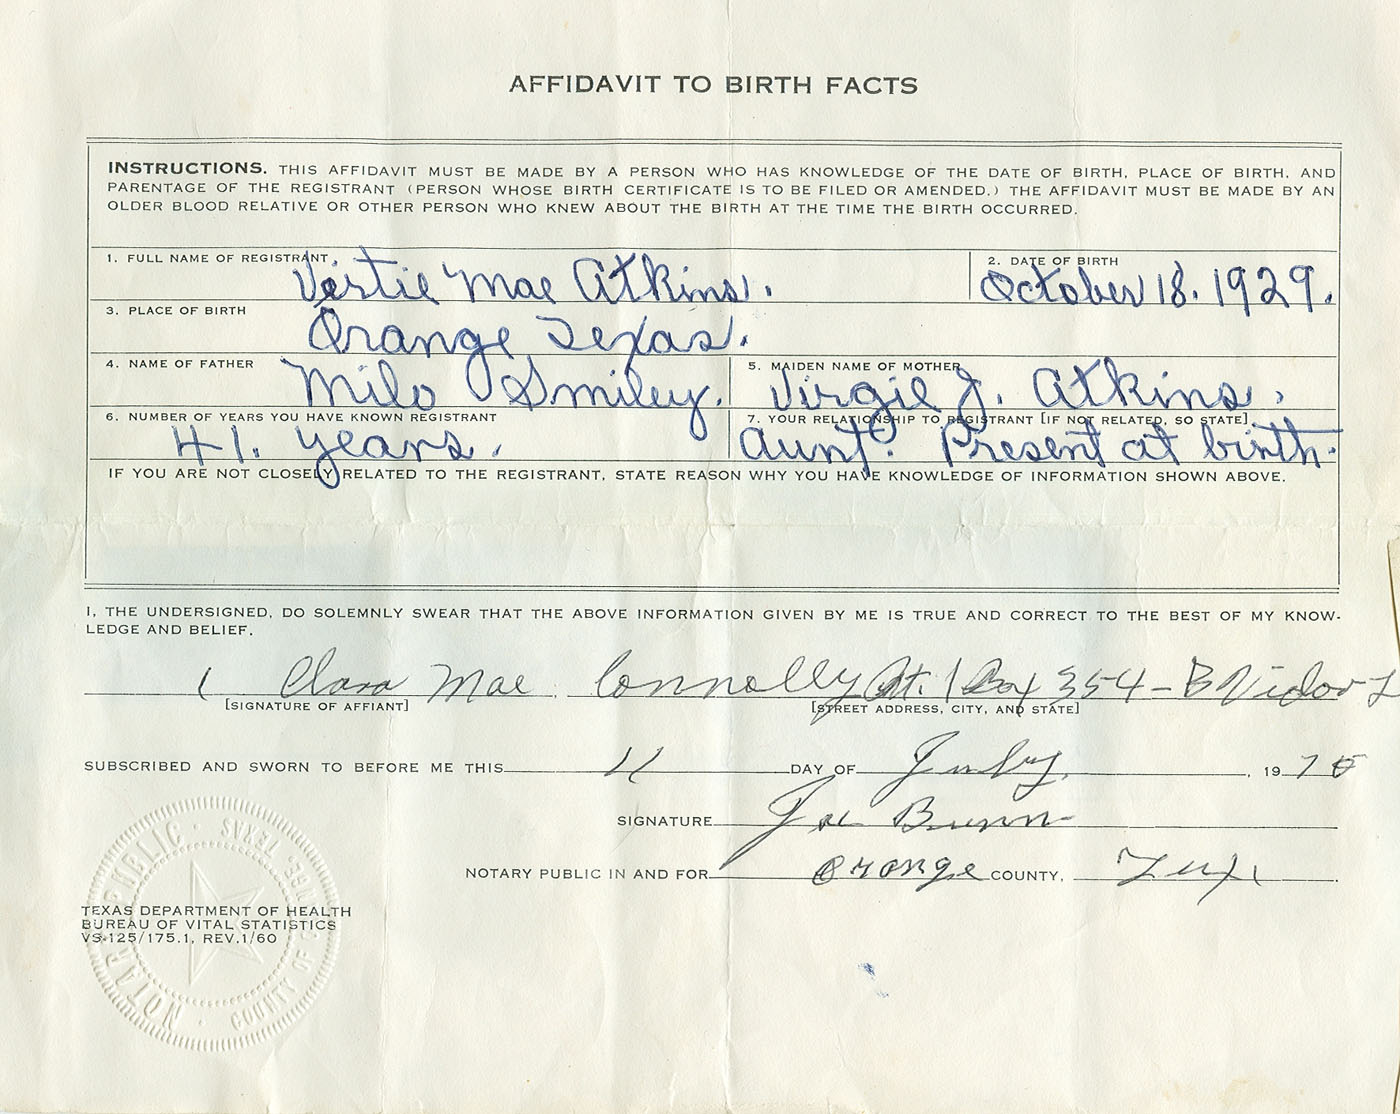 AFFIDAVIT TO BIRTH FACTS
INSTRUCTIONS. THIS AFFIDAVIT MUST BE MADE BY A PERSON WHO HAS KNOWLEDGE OF THE DATE OF BIRTH, PLACE OF BIRTH, AND
PARENTAGE OF THE REGISTRANT (PERSON WHOSE BIRTH CERTIFICATE IS TO BE FILED OR AMENDED.) THE AFFIDAVIT MUST BE MADE BY AN
OLDER BLOOD RELATIVE OR OTHER PERSON WHO KNEW ABOUT THE BIRTH AT THE TIME THE BIRTH OCCURRED.
1. FULL NAME OF REGISTRANT Vertie Mae Atkins.
2. DATE OF BIRTH October 18. 1929.
3. PLACE OF BIRTH Orange, Texas.
4. NAME OF FATHER Milo Smiley.
5. MAIDEN NAME OF MOTHER Virgie J. Atkins.
6. NUMBER OF YEARS YOU HAVE KNOWN REGISTRANT 41. years.
7. YOUR RELATIONSHIP TO REGISTRANT [IF NOT RELATED, SO STATE] Aunt. Present at birth.
IF YOU ARE NOT CLOSELY RELATED TO THE REGISTRANT, STATE REASON WHY YOU HAVE KNOWLEDGE OF INFORMATION SHOWN ABOVE.
I, THE UNDERSIGNED, DO SOLEMNLY SWEAR THAT THE ABOVE INFORMATION GIVEN BY ME IS TRUE AND CORRECT TO THE BEST OF MY KNOW-
LEDGE AND BELIEF.
Clara Mae Connolly Rt. 1 Box 354-B Vidor
[SIGNATURE OF AFFIANT] [STREET ADDRESS, CITY, AND STATE]
SUBSCRIBED AND SWORN TO BEFORE ME THIS 11 DAY OF July, 1970
SIGNATURE Joe Bunn
NOTARY PUBLIC IN AND FOR Orange COUNTY, Tex.
TEXAS DEPARTMENT OF HEALTH
BUREAU OF VITAL STATISTICS
VS-125/175.1, REV.1/60
NOTARY PUBLIC · COUNTY OF ORANGE, TEXAS ·